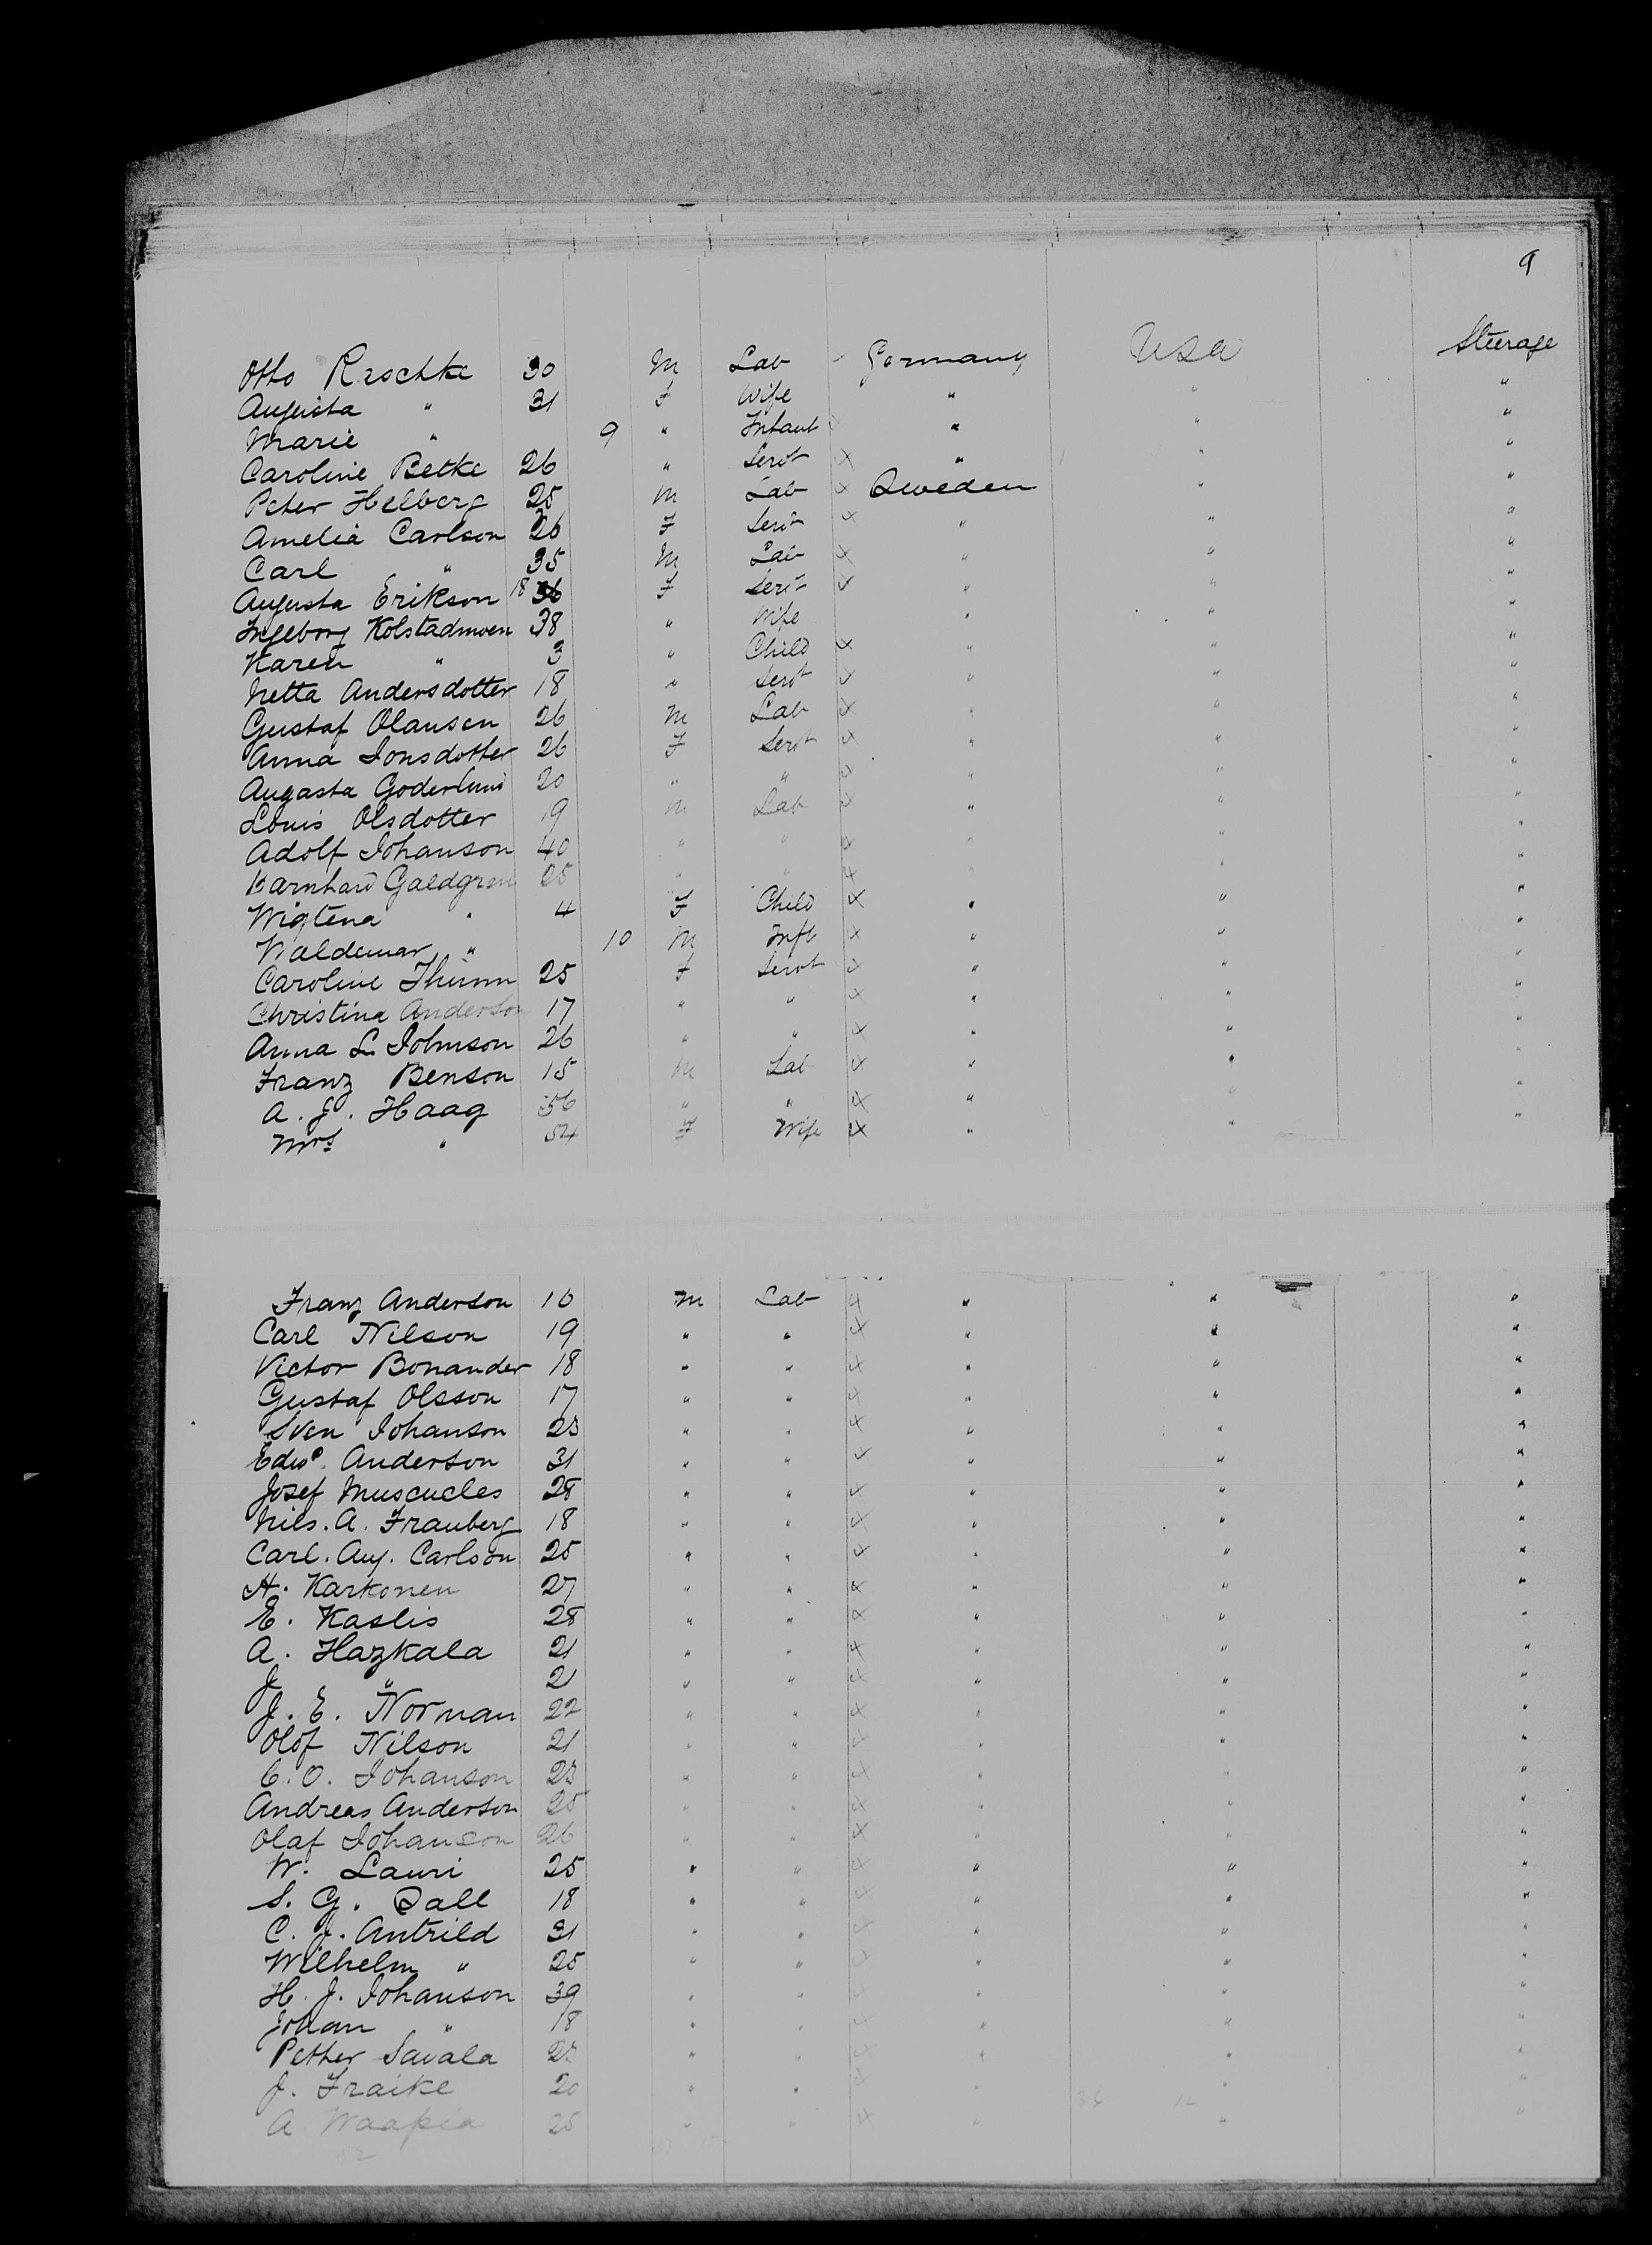 9
Otto Raschke 30 M Lab Germany USA Steerage
Augusta " 31 F Wife " " "
Marie " 9 " Infant " " "
Caroline Betke 26 " Servt " " "
Peter Helberg 25 M Lab Sweden " "
Amelia Carlson 26 F Servt " " "
Carl " 35 M Lab " " "
Augusta Erikson 18 F Servt " " "
Ingeborg Kolstadmoen 38 " Wife " " "
Karen " 3 " Child " " "
Netta Andersdotter 18 " Servt " " "
Gustaf Olausen 26 M Lab " " "
Anna Jonsdotter 26 F Servt " " "
Augasta Goderlund 20 " " " " "
Louis Olsdotter 19 M Lab " " "
Adolf Johanson 40 " " " " "
Barnhard Galdgren 25 " " " " "
Wigtena " 4 F Child " " "
Waldemar " 10 M Inft " " "
Caroline Thunn 25 F Servt " " "
Christina Anderson 17 " " " " "
Anna L. Johnson 26 " " " " "
Franz Benson 15 M Lab " " "
A. J. Haag 56 " " " " "
Mrs " 54 F Wife " " "
Franz Anderson 16 M Lab " " "
Carl Nilson 19 " " " " "
Victor Bonander 18 " " " " "
Gustaf Olsson 17 " " " " "
Sven Johanson 23 " " " " "
Edwd. Anderson 31 " " " " "
Josef Muscucles 28 " " " " "
Nils. A. Frauberg 18 " " " " "
Carl. Aug. Carlson 25 " " " " "
H. Karkonen 27 " " " " "
E. Kaslis 28 " " " " "
A. Hazkala 21 " " " " "
J " 21 " " " " "
J. E. Norman 22 " " " " "
Olof Nilson 21 " " " " "
C. O. Johanson 23 " " " " "
Andreas Anderson 25 " " " " "
Olaf Johanson 26 " " " " "
W. Lauri 25 " " " " "
S. G. Dall 18 " " " " "
C. J. Antrild 31 " " " " "
Wilhelm " 25 " " " " "
H. J. Johanson 39 " " " " "
Johan " 18 " " " " "
Pether Savala " " " " "
J. Fraike 20 " " " " "
A. Waapia 25 " " " " "